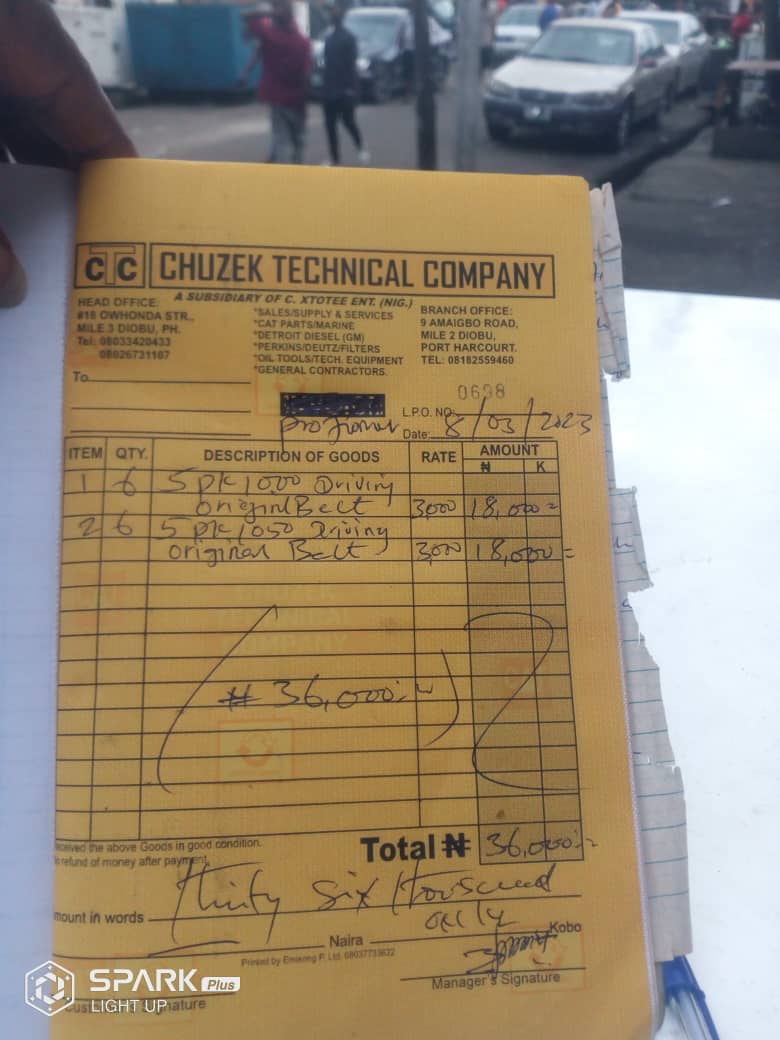 CTC CHUZEK TECHNICAL COMPANY
A SUBSIDIARY OF C. XTOTEE ENT. (NIG.)
HEAD OFFICE:
#16 OWHONDA STR.,
MILE 3 DIOBU, PH.
Tel: 08033420433
08026731107
*SALES/SUPPLY & SERVICES
*CAT PARTS/MARINE
*DETROIT DIESEL (GM)
*PERKINS/DEUTZ/FILTERS
*OIL TOOLS/TECH. EQUIPMENT
*GENERAL CONTRACTORS.
BRANCH OFFICE:
9 AMAIGBO ROAD,
MILE 2 DIOBU,
PORT HARCOURT.
TEL: 08182559460
To
0698
L.P.O. NO:
Date: 8/03/2023
ITEM QTY. DESCRIPTION OF GOODS RATE AMOUNT
₦ K
1 6 5pk 1000 Driving
original Belt 3,000 18,000=
2 6 5pk 1050 Driving
original Belt 3,000 18,000=
₦36,000
Received the above Goods in good condition.
No refund of money after payment.
Total ₦ 36,000
thirty six thousand
only
Amount in words
Naira Kobo
Printed by Emixong P. Ltd. 08037733622
Manager's Signature
Customer's Signature
SPARK Plus
LIGHT UP